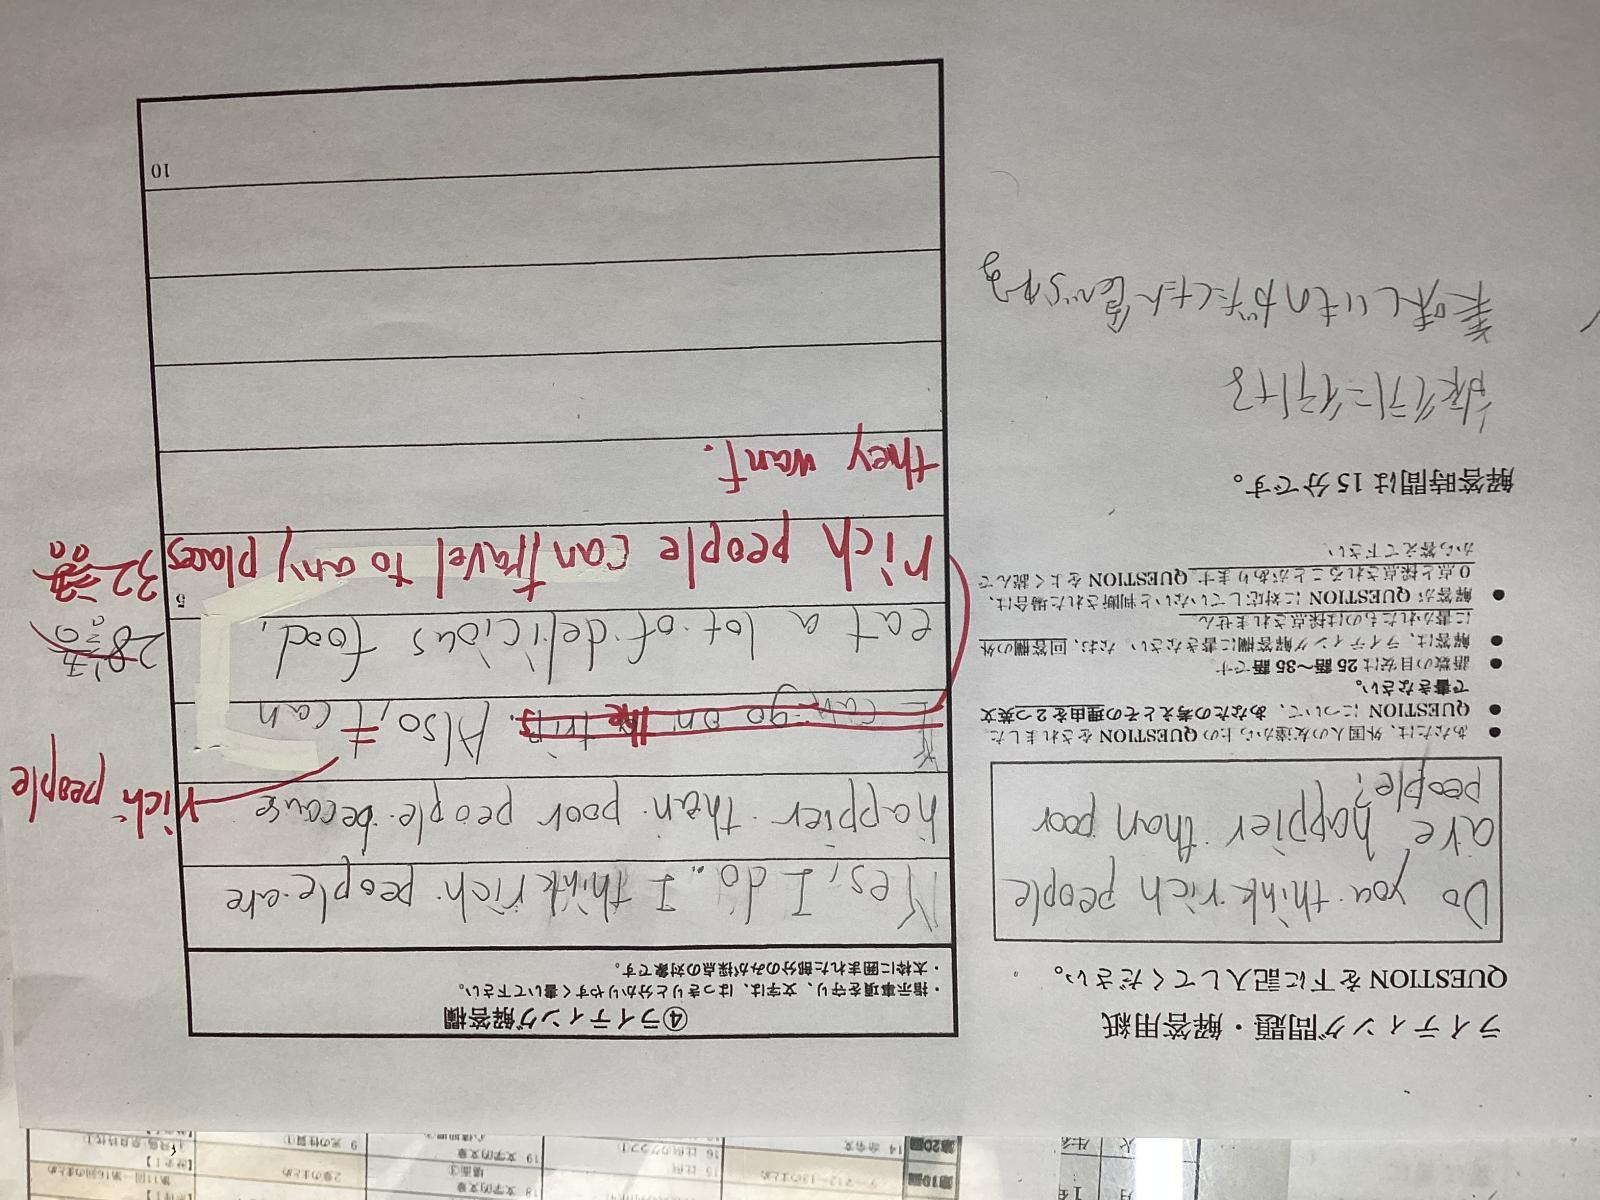 ライティング問題・解答用紙
QUESTIONを下に記入してください。
Do you think rich people
are happier than poor
people?
● あなたは、外国人の友達から上のQUESTIONをされました
● QUESTIONについて、あなたの考えとその理由を2つ英文
で書きなさい。
● 語数の目安は25語～35語です
● 解答は、ライティング解答欄に書きなさい。なお、回答欄の外
に書かれたものは採点されません
● 解答がQUESTIONに対応していないと判断された場合は、
0点と採点されることがあります。QUESTIONをよく読んで
から答えて下さい
解答時間は15分です。
旅行に行ける
美味しいものがたくさん食べられる
④ライティング解答欄
・指示事項を守り、文字は、はっきりと分かりやすく書いて下さい。
・太枠に囲まれた部分のみが採点の対象です。
Yes, I do. I think rich people are
happier than poor people because
rich people
I can go on the trips. Also, I can
eat a lot of delicious food.
28語
5
32語
rich people can travel to any places
they want.
10
第20回
14
16
19 文字的文章
9 光の性質①
第19回
15 比例
18
2章のまとめ